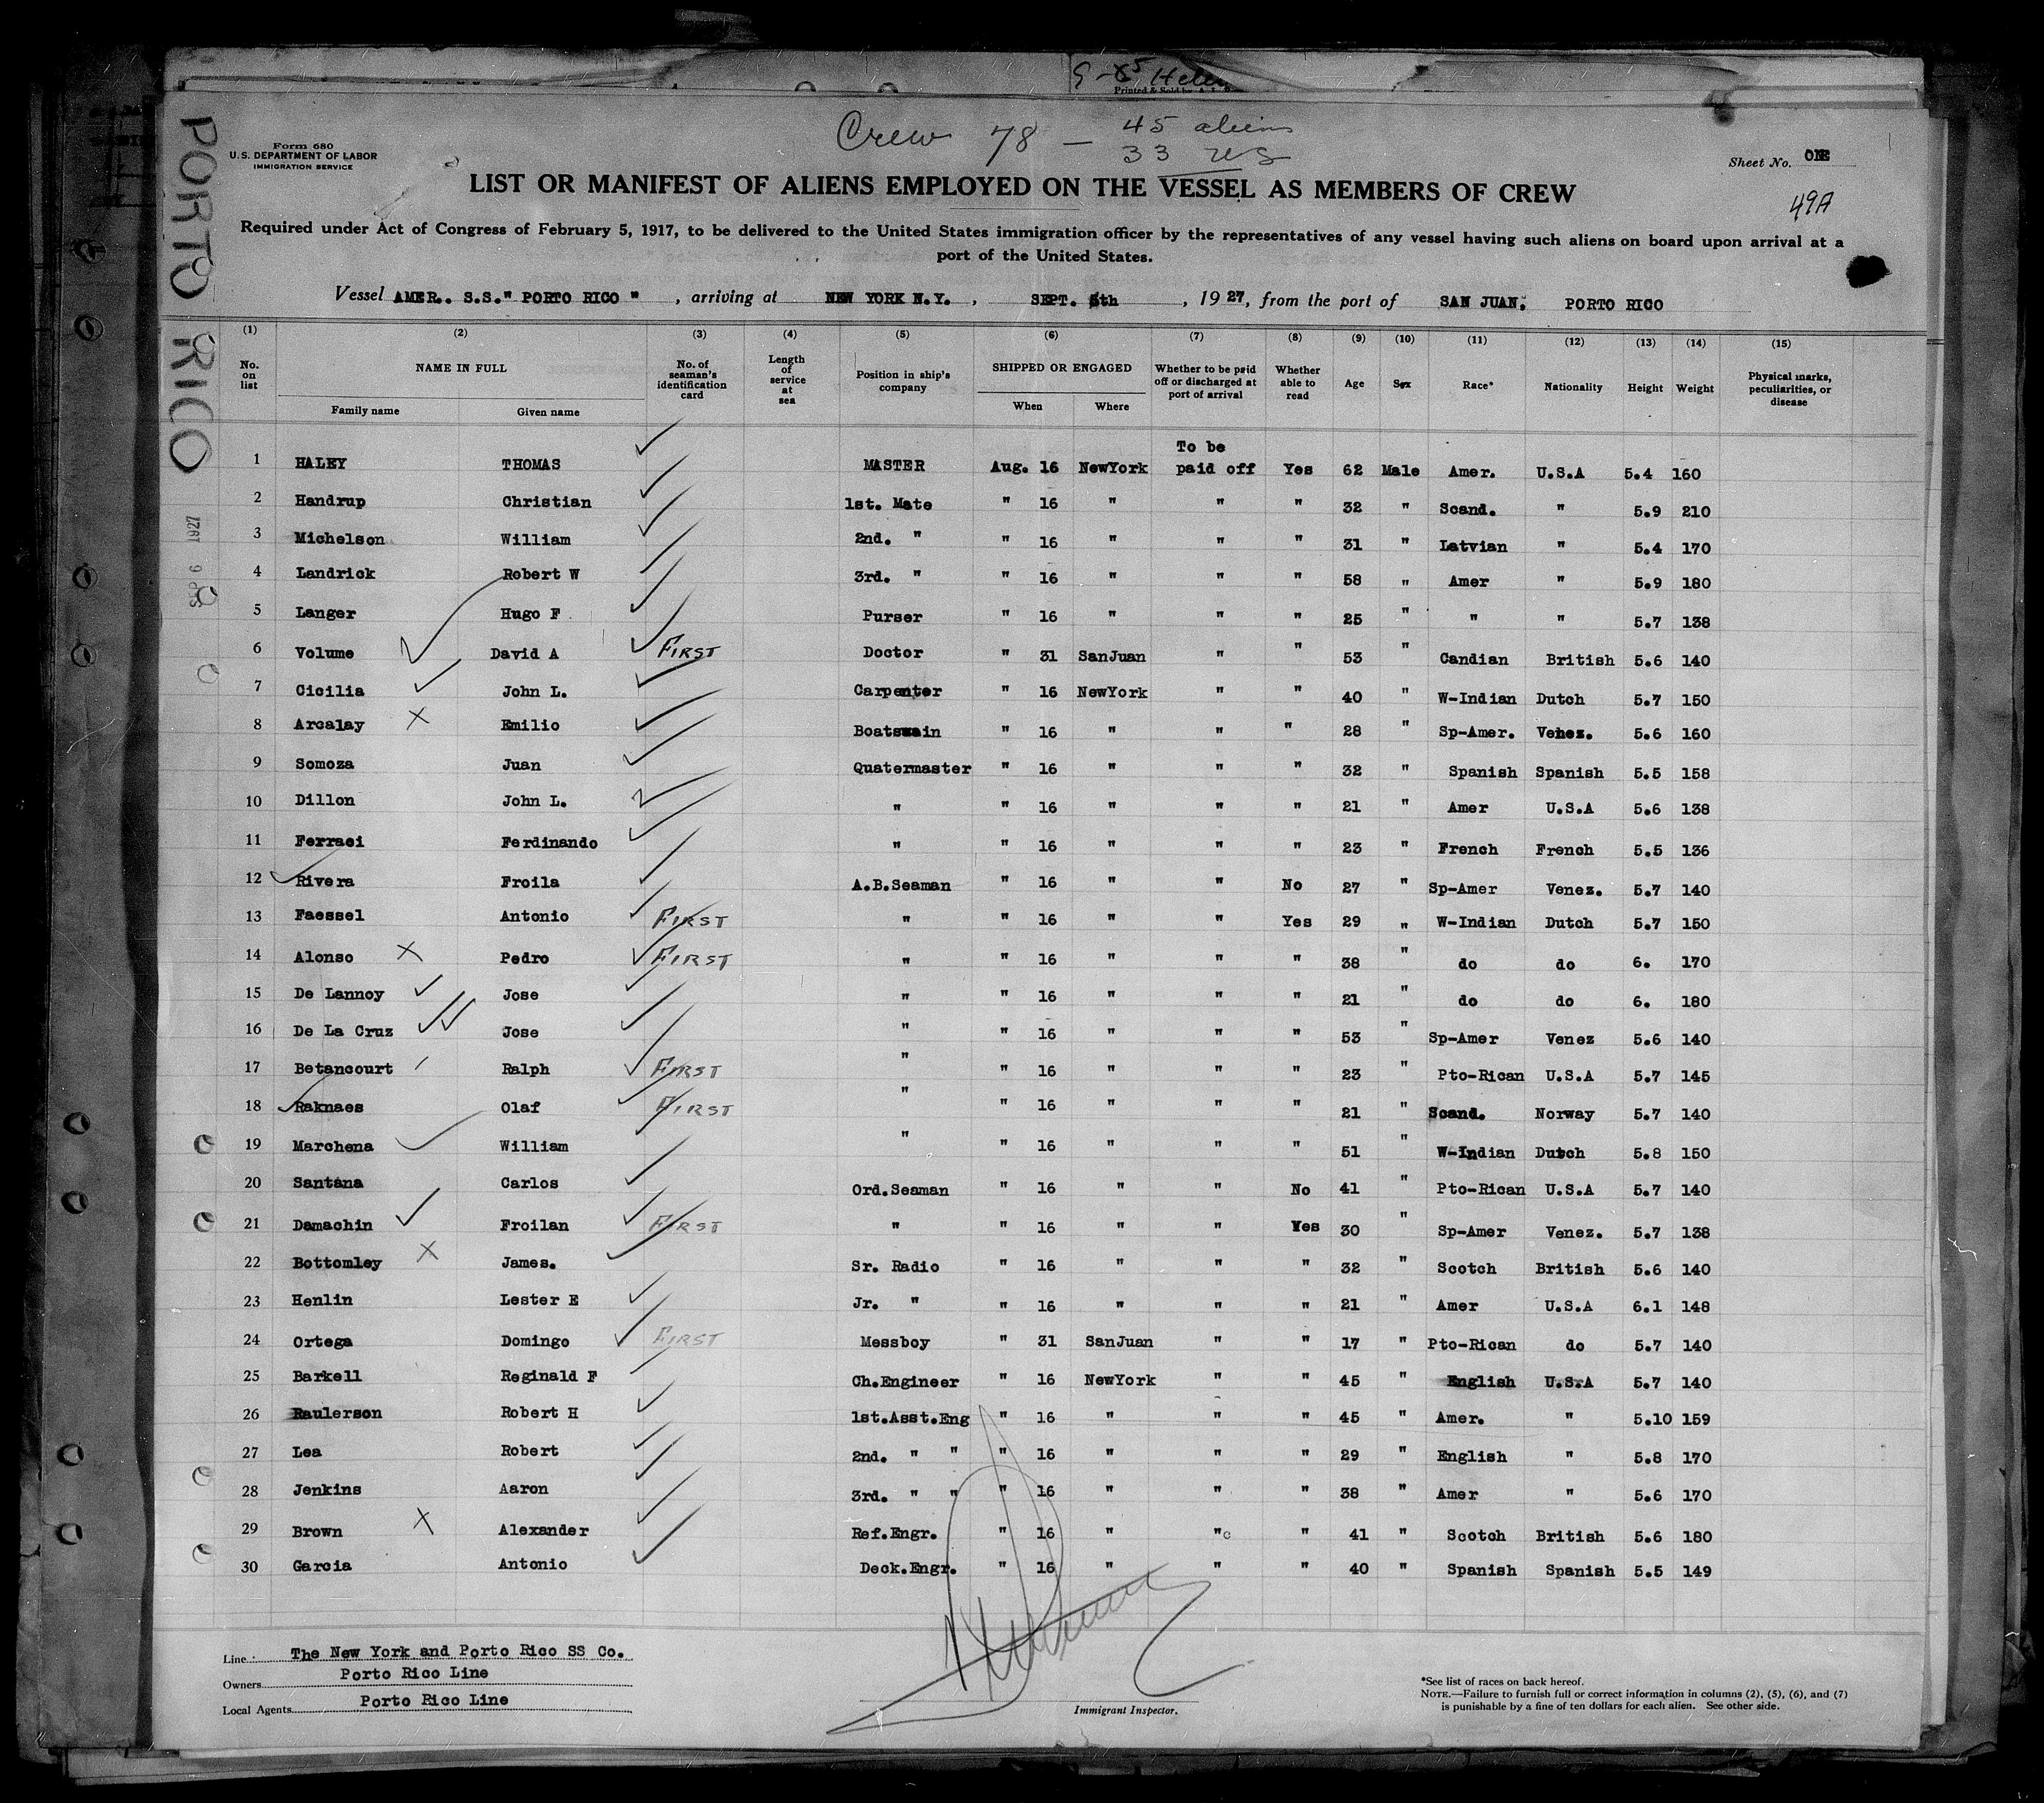 G-65 Helen
Printed & Sold by
PORTO RICO
SEP 6 1927
Crew 78 — 45 aliens
33 US
Form 680
U.S. DEPARTMENT OF LABOR
IMMIGRATION SERVICE
Sheet No. ONE
49A
LIST OR MANIFEST OF ALIENS EMPLOYED ON THE VESSEL AS MEMBERS OF CREW
Required under Act of Congress of February 5, 1917, to be delivered to the United States immigration officer by the representatives of any vessel having such aliens on board upon arrival at a
port of the United States.
Vessel AMER. S.S." PORTO RICO ", arriving at NEW YORK N.Y., SEPT. 5th, 1927, from the port of SAN JUAN. PORTO RICO
(1) (2) (3) (4) (5) (6) (7) (8) (9) (10) (11) (12) (13) (14) (15)
No. on list NAME IN FULL Family name Given name No. of seaman's identification card Length of service at sea Position in ship's company SHIPPED OR ENGAGED When Where Whether to be paid off or discharged at port of arrival Whether able to read Age Sex Race* Nationality Height Weight Physical marks, peculiarities, or disease
1 HALEY THOMAS MASTER Aug. 16 NewYork To be paid off Yes 62 Male Amer. U.S.A 5.4 160
2 Handrup Christian 1st. Mate " 16 " " " 32 " Scand. " 5.9 210
3 Michelson William 2nd. " " 16 " " " 31 " Latvian " 5.4 170
4 Landrick Robert W 3rd. " " 16 " " " 58 " Amer " 5.9 180
5 Langer Hugo F Purser " 16 " " " 25 " " " 5.7 138
6 Volume David A FIRST Doctor " 31 SanJuan " " 53 " Candian British 5.6 140
7 Cicilia John L. Carpenter " 16 NewYork " " 40 " W-Indian Dutch 5.7 150
8 Arcalay Emilio Boatswain " 16 " " " 28 " Sp-Amer. Venez. 5.6 160
9 Somoza Juan Quatermaster " 16 " " " 32 " Spanish Spanish 5.5 158
10 Dillon John L. " " 16 " " " 21 " Amer U.S.A 5.6 138
11 Ferraci Ferdinando " " 16 " " " 23 " French French 5.5 136
12 Rivera Froila A.B.Seaman " 16 " " No 27 " Sp-Amer Venez. 5.7 140
13 Faessel Antonio FIRST " " 16 " " Yes 29 " W-Indian Dutch 5.7 150
14 Alonso Pedro FIRST " " 16 " " " 38 " do do 6. 170
15 De Lannoy Jose " " 16 " " " 21 " do do 6. 180
16 De La Cruz Jose " " 16 " " " 53 " Sp-Amer Venez 5.6 140
17 Betancourt Ralph FIRST " " 16 " " " 23 " Pto-Rican U.S.A 5.7 145
18 Raknaes Olaf FIRST " " 16 " " " 21 " Scand. Norway 5.7 140
19 Marchena William " " 16 " " " 51 " W-Indian Dutch 5.8 150
20 Santana Carlos Ord.Seaman " 16 " " No 41 " Pto-Rican U.S.A 5.7 140
21 Damachin Froilan FIRST " " 16 " " Yes 30 " Sp-Amer Venez. 5.7 138
22 Bottomley James. Sr. Radio " 16 " " " 32 " Scotch British 5.6 140
23 Henlin Lester E Jr. " " 16 " " " 21 " Amer U.S.A 6.1 148
24 Ortega Domingo FIRST Messboy " 31 SanJuan " " 17 " Pto-Rican do 5.7 140
25 Barkell Reginald F Ch.Engineer " 16 NewYork " " 45 " English U.S.A 5.7 140
26 Raulerson Robert H 1st.Asst.Eng " 16 " " " 45 " Amer. " 5.10 159
27 Lea Robert 2nd. " " " 16 " " " 29 " English " 5.8 170
28 Jenkins Aaron 3rd. " " " 16 " " " 38 " Amer " 5.6 170
29 Brown Alexander Ref.Engr. " 16 " "c " 41 " Scotch British 5.6 180
30 Garcia Antonio Deck.Engr. " 16 " " " 40 " Spanish Spanish 5.5 149
Line The New York and Porto Rico SS Co.
Owners Porto Rico Line
Local Agents Porto Rico Line
Immigrant Inspector.
*See list of races on back hereof.
NOTE.—Failure to furnish full or correct information in columns (2), (5), (6), and (7)
is punishable by a fine of ten dollars for each alien. See other side.